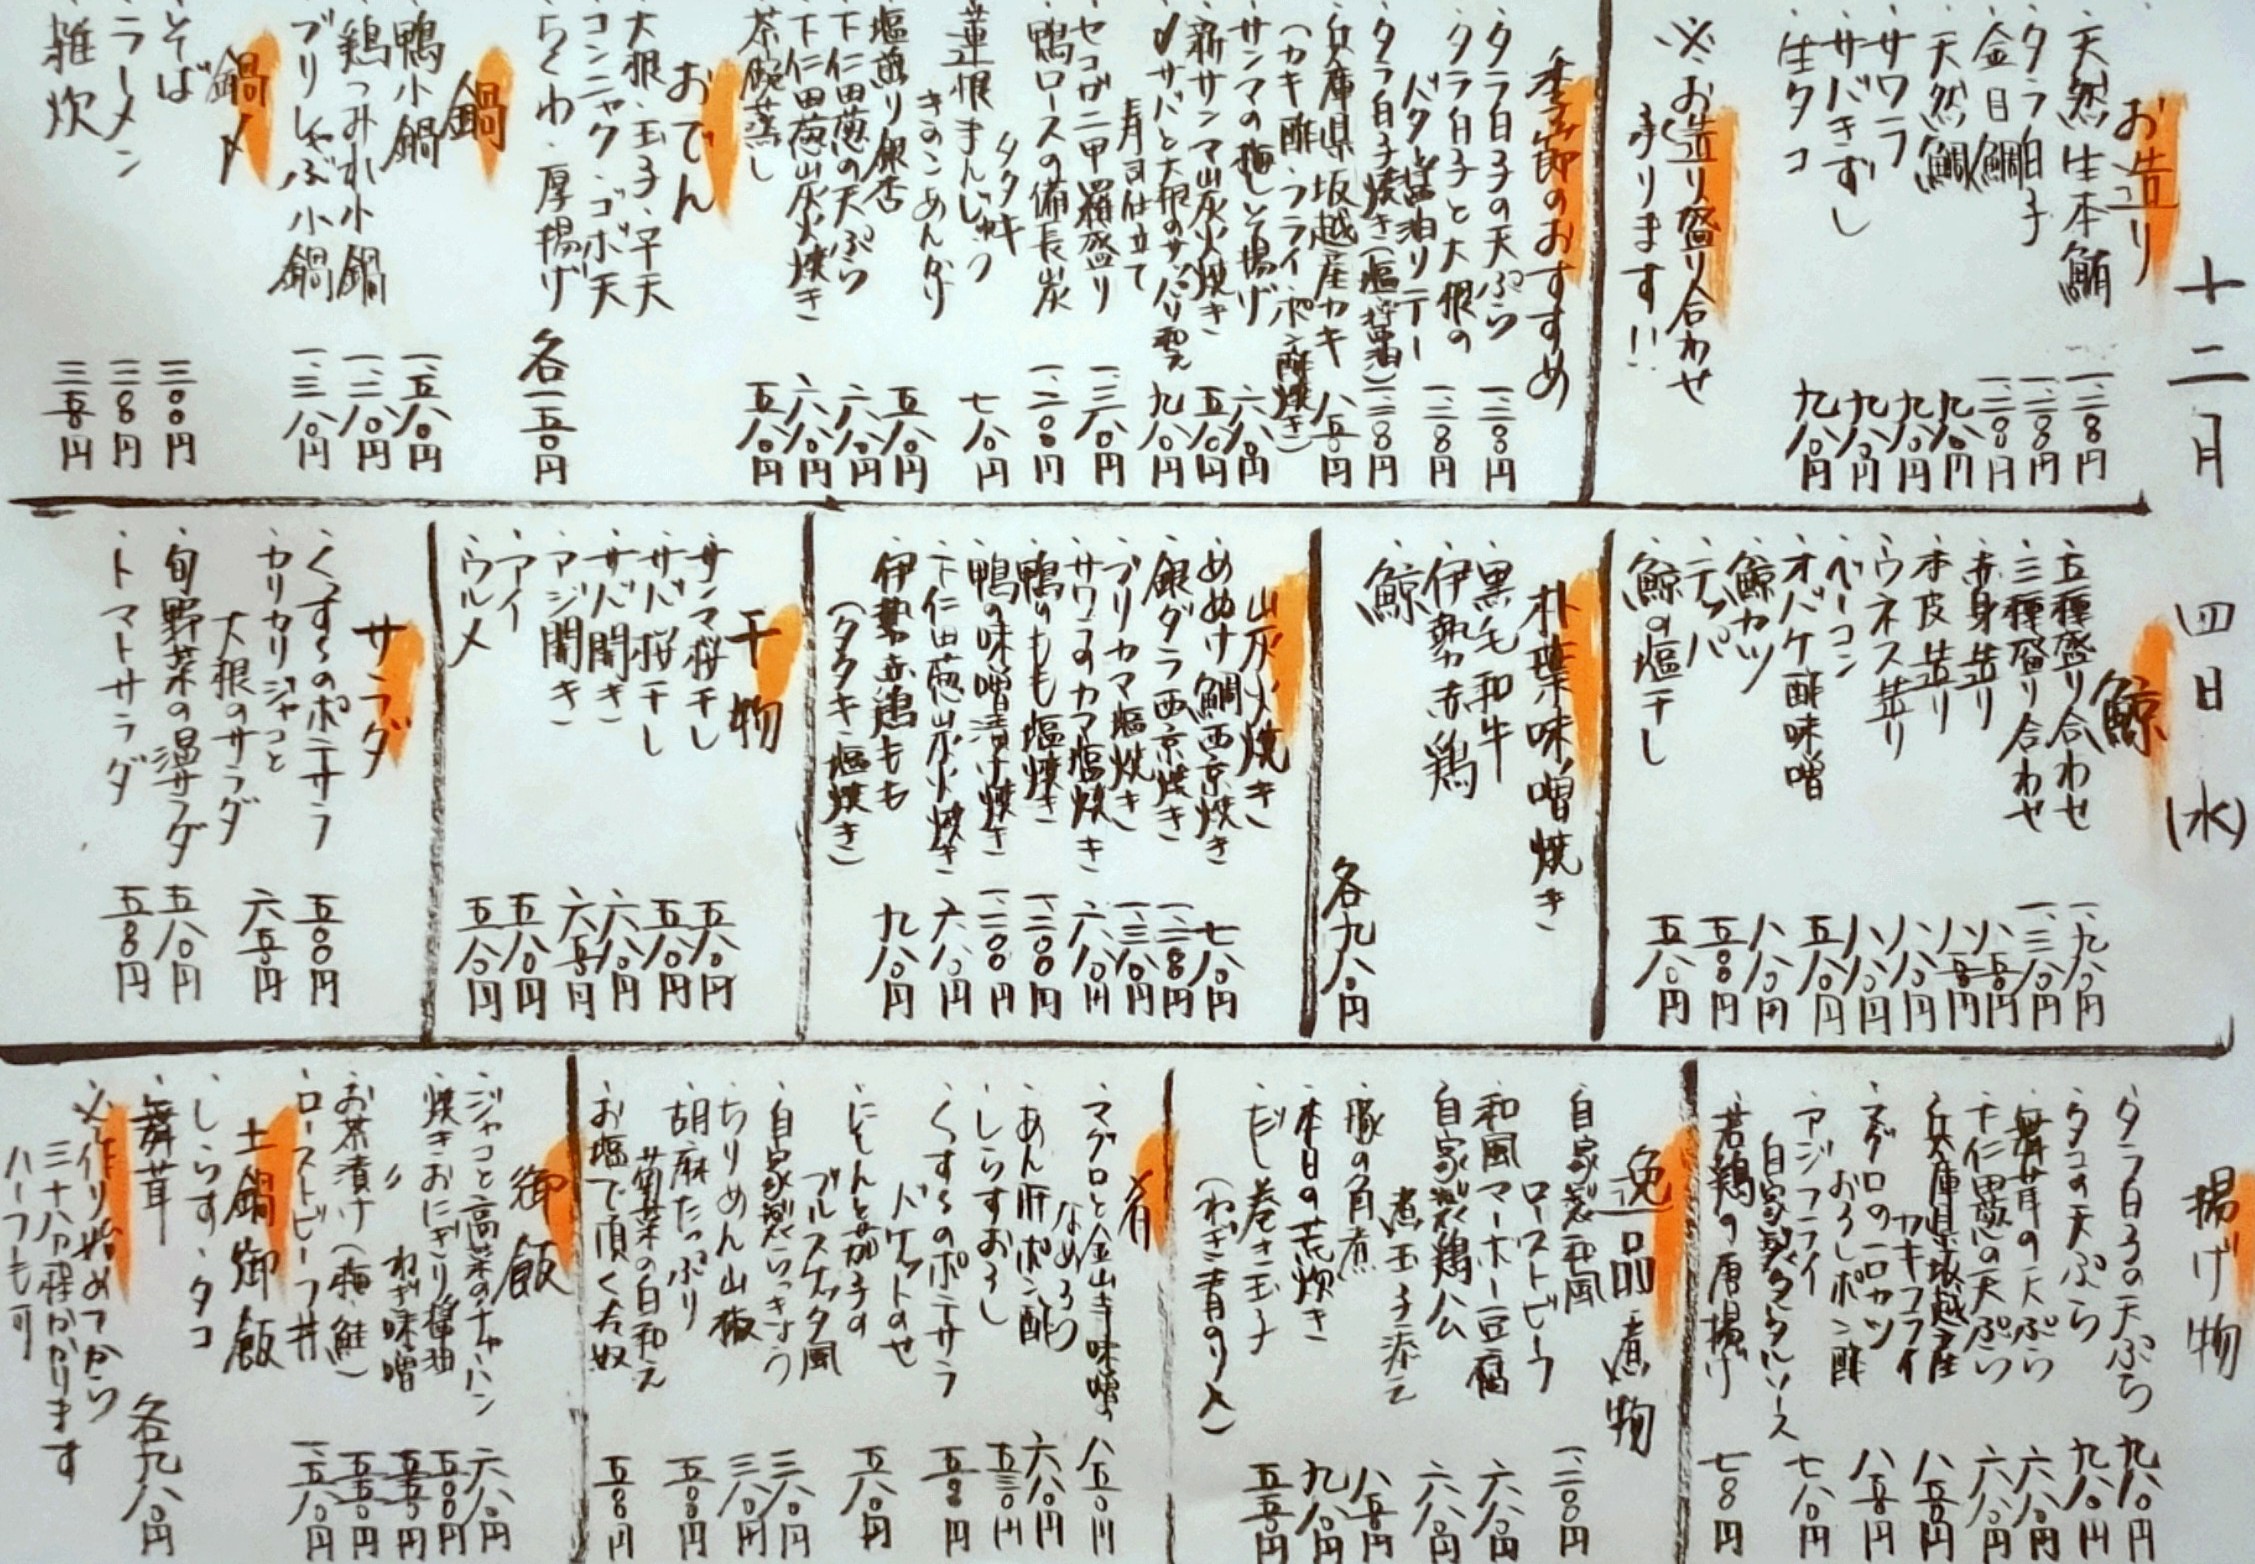 十二月 四日 (水)
お造り
・天然生本鮪 一、二八〇円
・タラ白子 一、二八〇円
・金目鯛 一、二八〇円
・天然鯛 九八〇円
・サワラ 九八〇円
・サバきずし 九八〇円
・生タコ 九八〇円
※お造り盛り合わせ
承ります!!
季節のおすすめ
・タラ白子の天ぷら 一、二八〇円
・タラ白子と大根の
バター醤油ソテー 一、二八〇円
・タラ白子焼き(塩・醤油) 一、二八〇円
・兵庫県坂越産カキ
(カキ酢・フライ・ポン酢焼き) 八五〇円
・サンマの梅しそ揚げ 六八〇円
・新サンマ山灰火焼き 五八〇円
・〆サバと大根のサッパリ和え
寿司仕立て 九八〇円
・セコガニ甲羅盛り 一、三八〇円
・鴨ロースの備長炭
タタキ 一、二〇〇円
・蓮根まんじゅう
きのこあんかけ 七八〇円
・塩煎り銀杏 五八〇円
・下仁田葱の天ぷら 六八〇円
・下仁田葱山灰火焼き 六八〇円
・茶碗蒸し 五八〇円
おでん
・大根・玉子・平天
・コンニャク・ゴボ天
・ちくわ・厚揚げ 各一五〇円
鍋
・鴨小鍋 一、五八〇円
・鶏つみれ小鍋 一、二八〇円
・ブリしゃぶ小鍋 一、三八〇円
鍋〆
・そば 三〇〇円
・ラーメン 三〇〇円
・雑炊 三五〇円
鯨
・五種盛り合わせ 一、九八〇円
・三種盛り合わせ 一、三八〇円
・赤身造り 八八〇円
・本皮造り 八八〇円
・ウネス造り 八八〇円
・ベーコン 八八〇円
・オバケ酢味噌 五八〇円
・鯨カツ 八八〇円
・テッパ 五八〇円
・鯨の塩干し 五八〇円
朴葉味噌焼き
・黒毛和牛
・伊勢赤鶏
・鯨
各九八〇円
山灰火焼き
・めぬけ鯛西京焼き 七八〇円
・銀ダラ西京焼き 一、二八〇円
・ブリカマ塩焼き 一、三八〇円
・サワラのカマ塩焼き 六八〇円
・鴨のもも塩焼き 一、二〇〇円
・鴨の味噌漬け焼き 一、二〇〇円
・下仁田葱山灰火焼き 六八〇円
・伊勢赤鶏もも
(タタキ・塩焼き) 九八〇円
干物
・サンマ桜干し 五八〇円
・サバ桜干し 五八〇円
・サバ開き 六八〇円
・アジ開き 六五〇円
・アイ 五八〇円
・ウルメ 五八〇円
サラダ
・くずし the ポテサラ 五〇〇円
・カリカリジャコと
大根のサラダ 六五〇円
・旬野菜の温サラダ 五八〇円
・トマトサラダ 五八〇円
揚げ物
・タラ白子の天ぷら 九八〇円
・タコの天ぷら 九八〇円
・舞茸の天ぷら 六八〇円
・下仁田葱の天ぷら 六八〇円
・兵庫県坂越産
カキフライ 八五〇円
・マグロの一口カツ
おろしポン酢 八五〇円
・アジフライ
自家製タルタルソース 七八〇円
・若鶏の唐揚げ 七八〇円
逸品・煮物
・自家製和風
ローストビーフ 一、二八〇円
・和風マーボー豆腐 六八〇円
・自家製鶏公
煮玉子添え 六八〇円
・豚の角煮 八五〇円
・本日の荒炊き 九八〇円
・だし巻き玉子
(ねぎ・青のり入) 五五〇円
肴
・マグロと金山寺味噌の
なめろう 八五〇円
・あん肝ポン酢 六八〇円
・しらすおろし 五三〇円
・くずし the ポテサラ
バケットのせ 五五〇円
・にしんと茄子の
ブルスケッタ風 五八〇円
・自家製らっきょう 三八〇円
・ちりめん山椒 三八〇円
・胡麻たっぷり
菊菜の白和え 五五〇円
・お塩で頂く冷奴 五五〇円
御飯
・ジャコと高菜のチャーハン 六八〇円
・焼きおにぎり醤油 五〇〇円
〃 ねぎ味噌 五五〇円
・お茶漬け(梅・鮭) 五五〇円
・ローストビーフ丼 一、五八〇円
土鍋御飯
・しらす・タコ
・舞茸 各九八〇円
※作り始めてから
三十分程かかります
ハーフも可